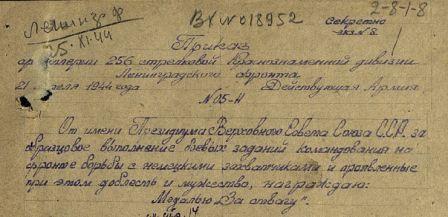 2-8-1-8
Ленингр. ф
25.XI.44
ВхN018952
Секретно
экз N
Приказ
артиллерии 256 стрелковой Краснознаменной дивизии
Ленинградского фронта
21 1944 года Действующая Армия
N 05-Н
От имени Президиума Верховного Совета Союза ССР, за
образцовое выполнение боевых заданий командования на
фронте борьбы с немецкими захватчиками и проявленные
при этом доблесть и мужество, награждаю:
Медалью „За отвагу"